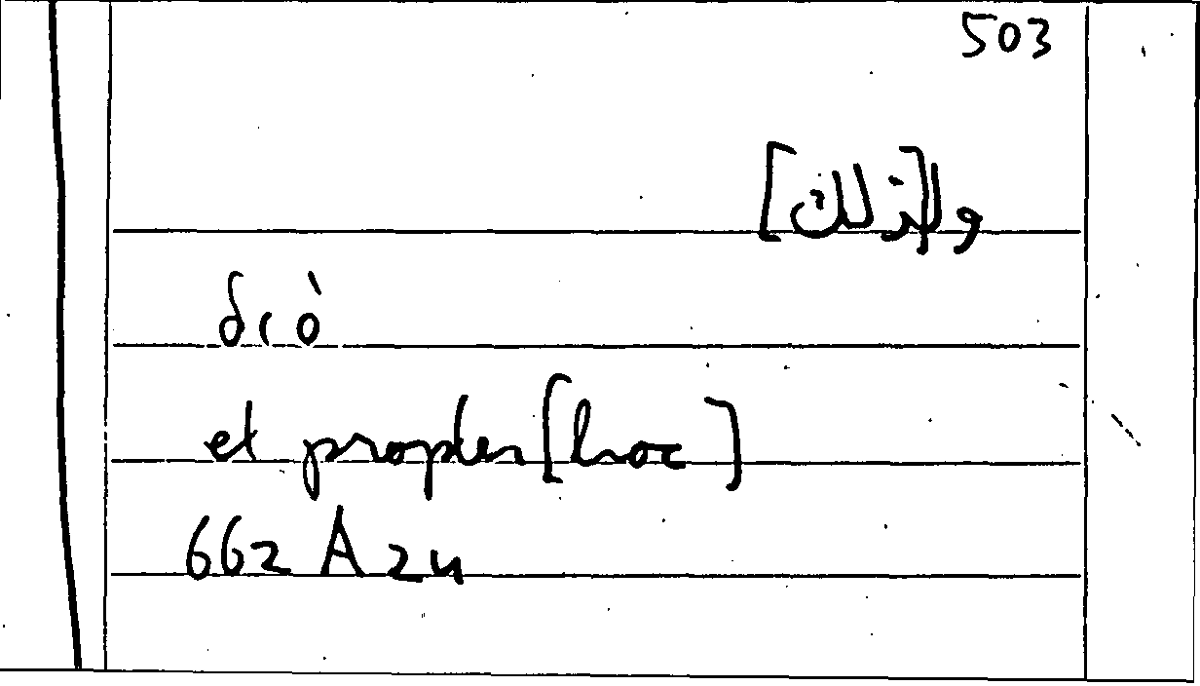 503
ول[ذلك]
διὸ
et propter [hoc]
662 A 24